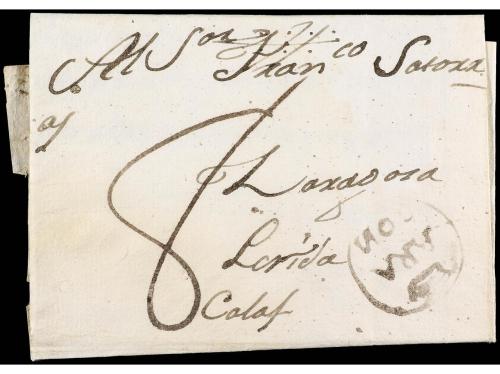 Al Sor Dn Franco Satorra
8
Zaragosa
Lerida
Calaf